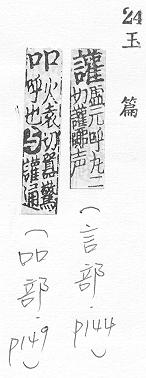 24
玉篇
讙虛元呼丸二切讙嚻声
(言部·p144)
吅火袁切嚻驚呼也与讙通
(吅部·p149)